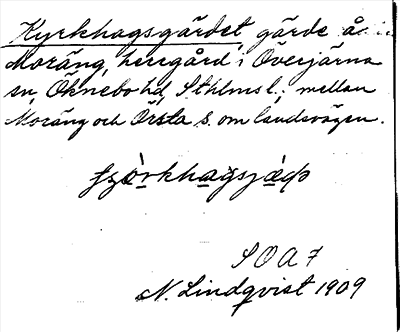 Kyrkhagsgärdet, gärde å
Moräng, herrgård i Överjärna
sn, Öknebo hd, Sthlms l.; mellan
Moräng och Örsta s. om landsvägen.
SOA 7
N. Lindqvist 1909